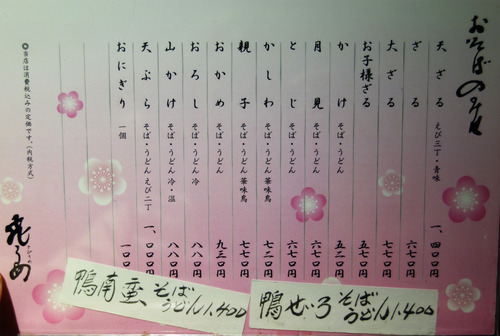 おそばのみせ
天ざる えび三丁・青味 一、四〇〇円
ざる 六七〇円
大ざる 七七〇円
お子様ざる 五七〇円
かけ そば・うどん 五二〇円
月見 そば・うどん 六七〇円
とじ そば・うどん 六七〇円
かしわ そば・うどん 華味鳥 七二〇円
親子 そば・うどん 華味鳥 七七〇円
おかめ そば・うどん 九三〇円
おろし そば・うどん 冷 八八〇円
山かけ そば・うどん 冷・温 八八〇円
天ぷら そば・うどん えび二丁 一、〇〇〇円
おにぎり 一個 一〇〇
◎当店は消費税込みの定価です。(内税方式)
鴨せいろ そば うどん 1,400
鴨南蛮 そば うどん 1,400